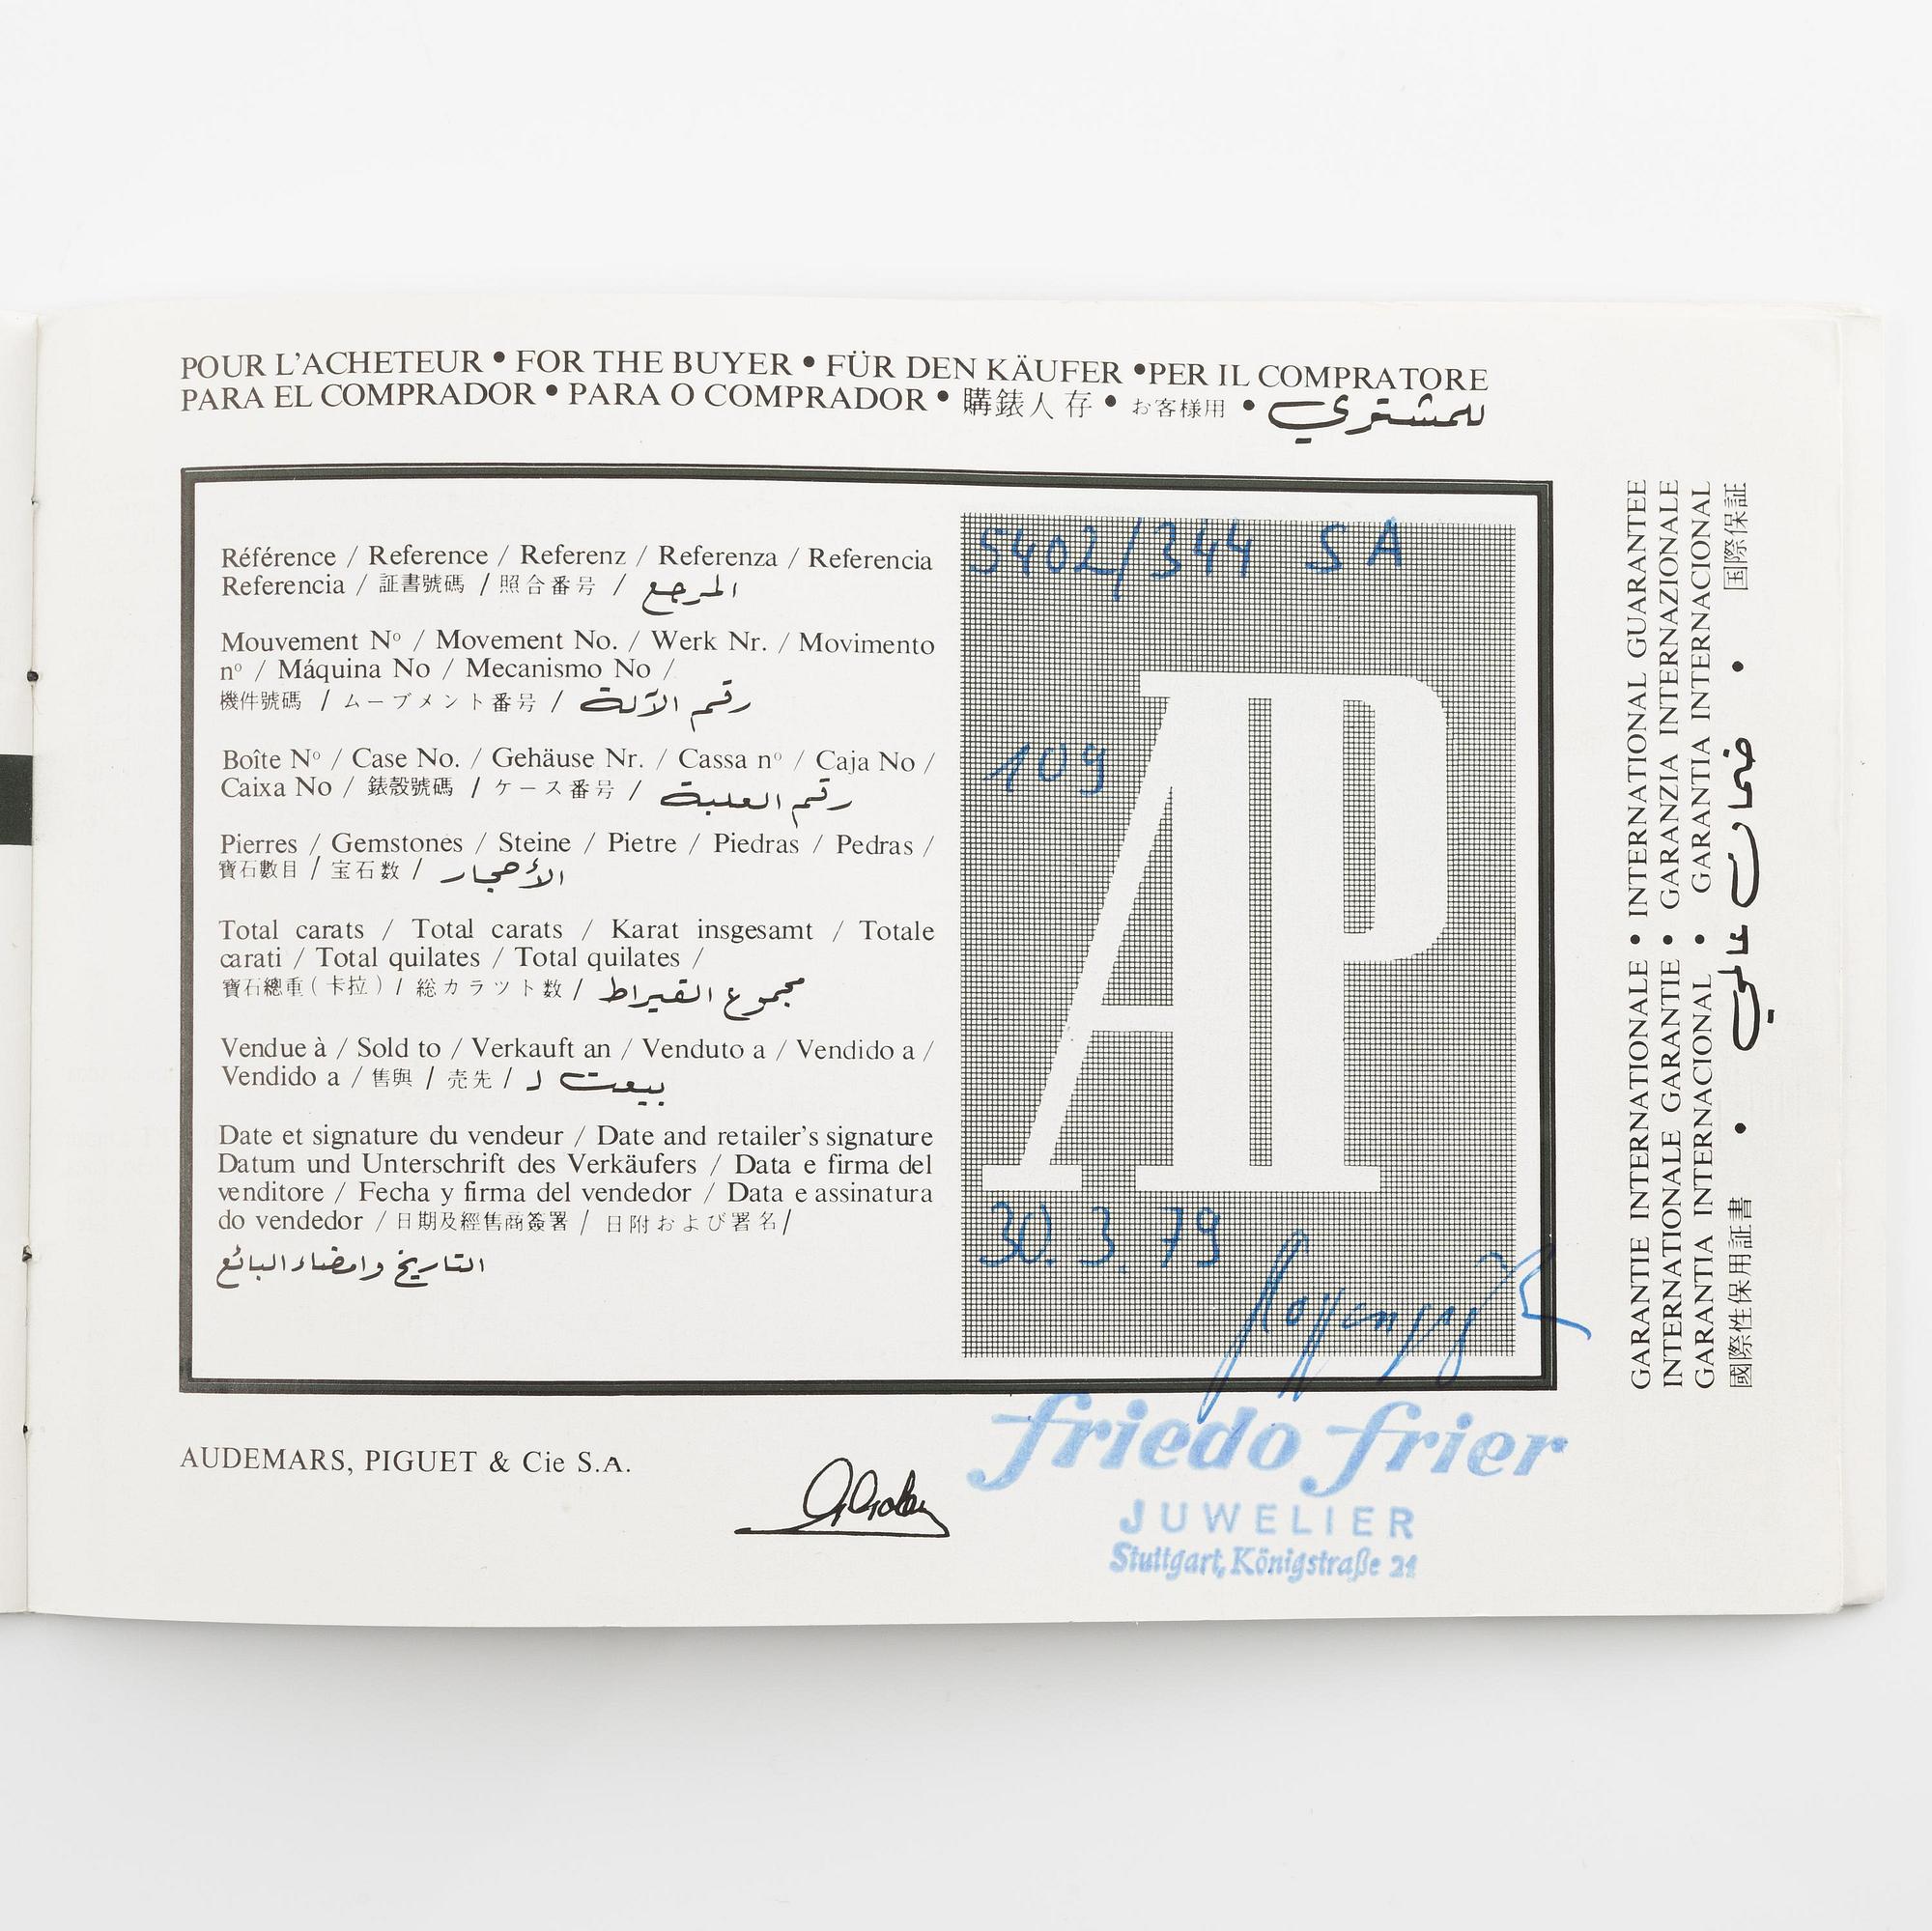 POUR L'ACHETEUR • FOR THE BUYER • FÜR DEN KÄUFER •PER IL COMPRATORE
PARA EL COMPRADOR • PARA O COMPRADOR • 購錶人存 • お客様用 • للمشتري
Référence / Reference / Referenz / Referenza / Referencia
Referencia / 証書號碼 / 照合番号 / المرجع
5402/344 SA
Mouvement Nº / Movement No. / Werk Nr. / Movimento
nº / Máquina No / Mecanismo No /
機件號碼 / ムーブメント番号 / رقم الآلة
Boîte Nº / Case No. / Gehäuse Nr. / Cassa nº / Caja No /
Caixa No / 錶殼號碼 / ケース番号 / رقم العلبة
109
Pierres / Gemstones / Steine / Pietre / Piedras / Pedras /
寶石數目 / 宝石数 / الأحجار
Total carats / Total carats / Karat insgesamt / Totale
carati / Total quilates / Total quilates /
寶石總重(卡拉) / 総カラット数 / مجموع القيراط
Vendue à / Sold to / Verkauft an / Venduto a / Vendido a /
Vendido a / 售與 / 売先 / بيعت ل
Date et signature du vendeur / Date and retailer's signature
Datum und Unterschrift des Verkäufers / Data e firma del
venditore / Fecha y firma del vendedor / Data e assinatura
do vendedor / 日期及經售商簽署 / 日附および署名/
التاريخ وامضاء البائع
30. 3. 79
AP
AUDEMARS, PIGUET & Cie S.A.
friedo frier
JUWELIER
Stuttgart, Königstraße 21
GARANTIE INTERNATIONALE • INTERNATIONAL GUARANTEE
INTERNATIONALE GARANTIE • GARANZIA INTERNAZIONALE
GARANTIA INTERNACIONAL • GARANTIA INTERNACIONAL
國際性保用証書 • ضمان عالمي • 国際保証